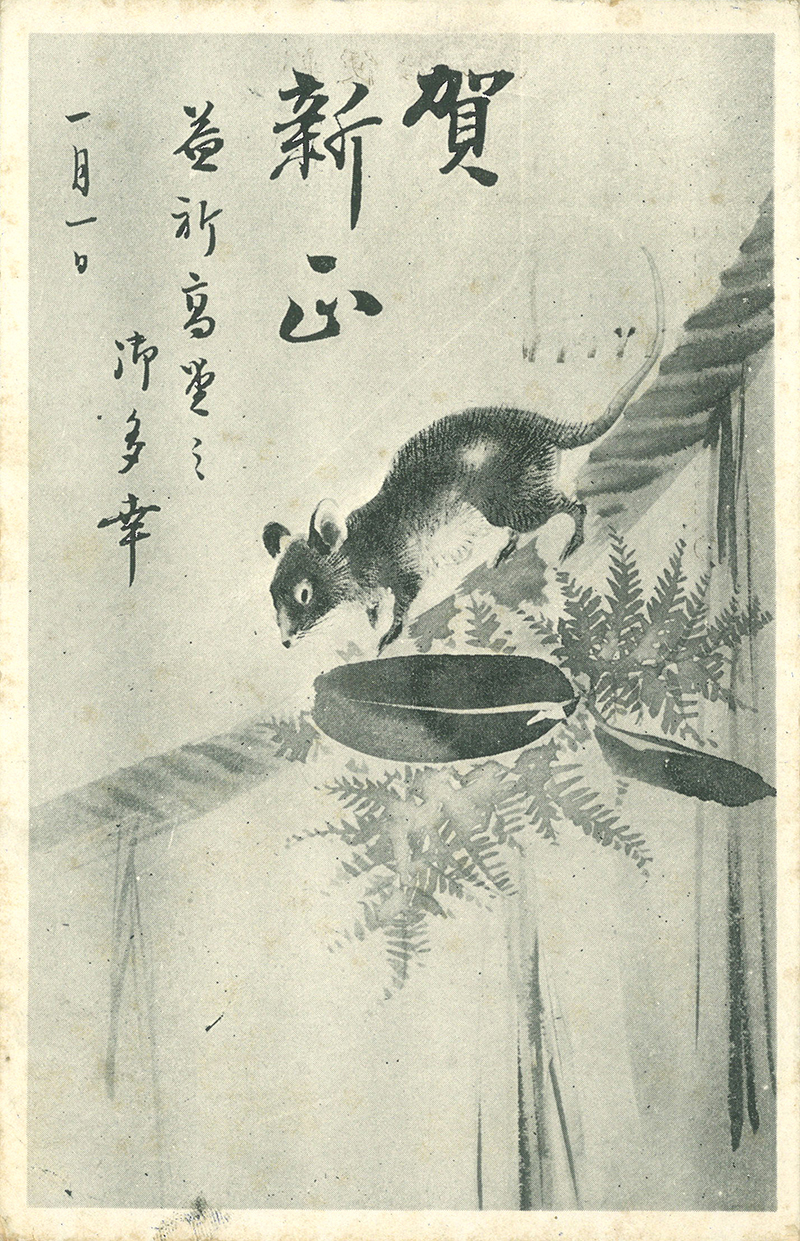 賀
新正
益祈高堂之
御多幸
一月一日